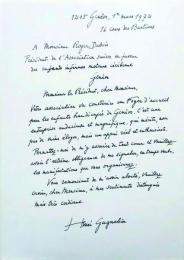 1205 Genève, 1er mars 1974
16 cours des Bastions
A Monsieur Roger Dubois
Président de l'Association Suisse en faveur
des enfants infirmes moteurs cérébraux
Genève
Monsieur le Président, cher Monsieur,
Votre association va construire un foyer d'accueil
pour les enfants handicapés de Genève. C'est une
entreprise audacieuse et magnifique, qui mérite, non
pas de mais un appui réel et enthousiaste.
Permettez-moi de m'y associer de tout cœur et
avoir l'extrême obligeance de me signaler, en temps utile,
les manifestations que vous organiserez.
Vous remerciant de m'avoir alerté, veuillez
croire, cher Monsieur, à mes sentiments distingués
mais très cordiaux.
Henri Gagnebin